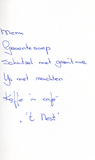 Menu
Groentesoep
Schotel met groentume
IJs met vruchten
Koffie in café
't Nest